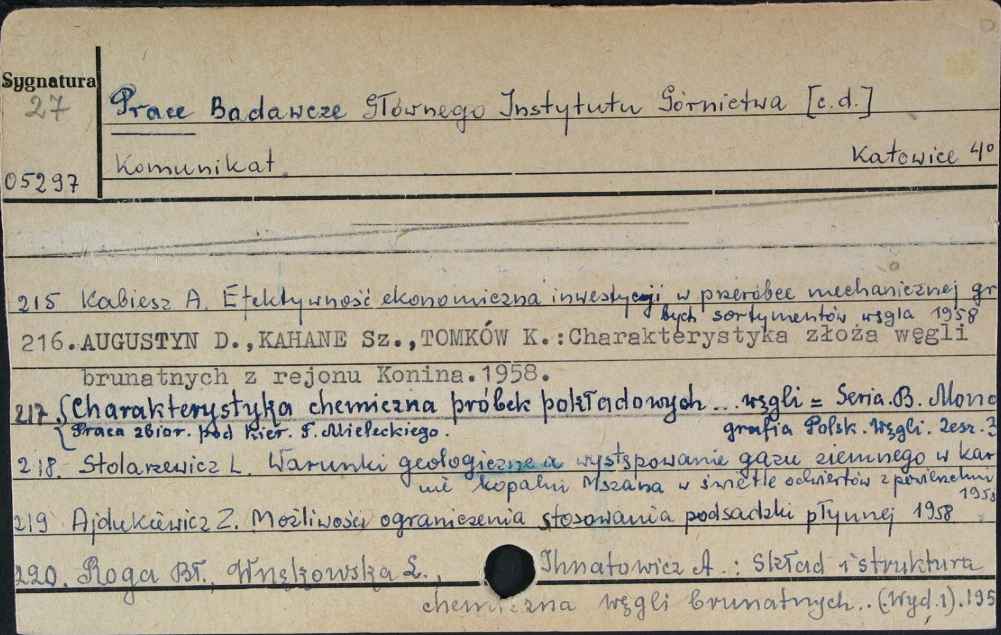 Sygnatura
27
Prace Badawcze Głównego Instytutu Górnictwa [c.d.]
Komunikat. Katowice 4°
05297
215 Kabiesz A. Efektywność ekonomiczna inwestycji w przeróbce mechanicznej gr
bych sortymentów węgla 1958
216. AUGUSTYN D., KAHANE Sz., TOMKÓW K.: Charakterystyka złoża węgli
brunatnych z rejonu Konina. 1958.
217 {Charakterystyka chemiczna próbek pokładowych... węgli = Seria. B. Mono
{Praca zbior. pod kier. T. Mieleckiego. grafia Polsk. Węgli. Zesz. 3
218. Stolarzewicz L. Warunki geologiczne a występowanie gazu ziemnego w kar
nie kopalni Mszana w świetle odwiertów z powierzchni
1958
219 Ajdukiewicz Z. Możliwości ograniczenia stosowania podsadzki płynnej 1958
220. Roga Bł., Wnękowska L., Ihnatowicz A.: Skład i struktura
chemiczna węgli brunatnych.. (Wyd. 1). 195